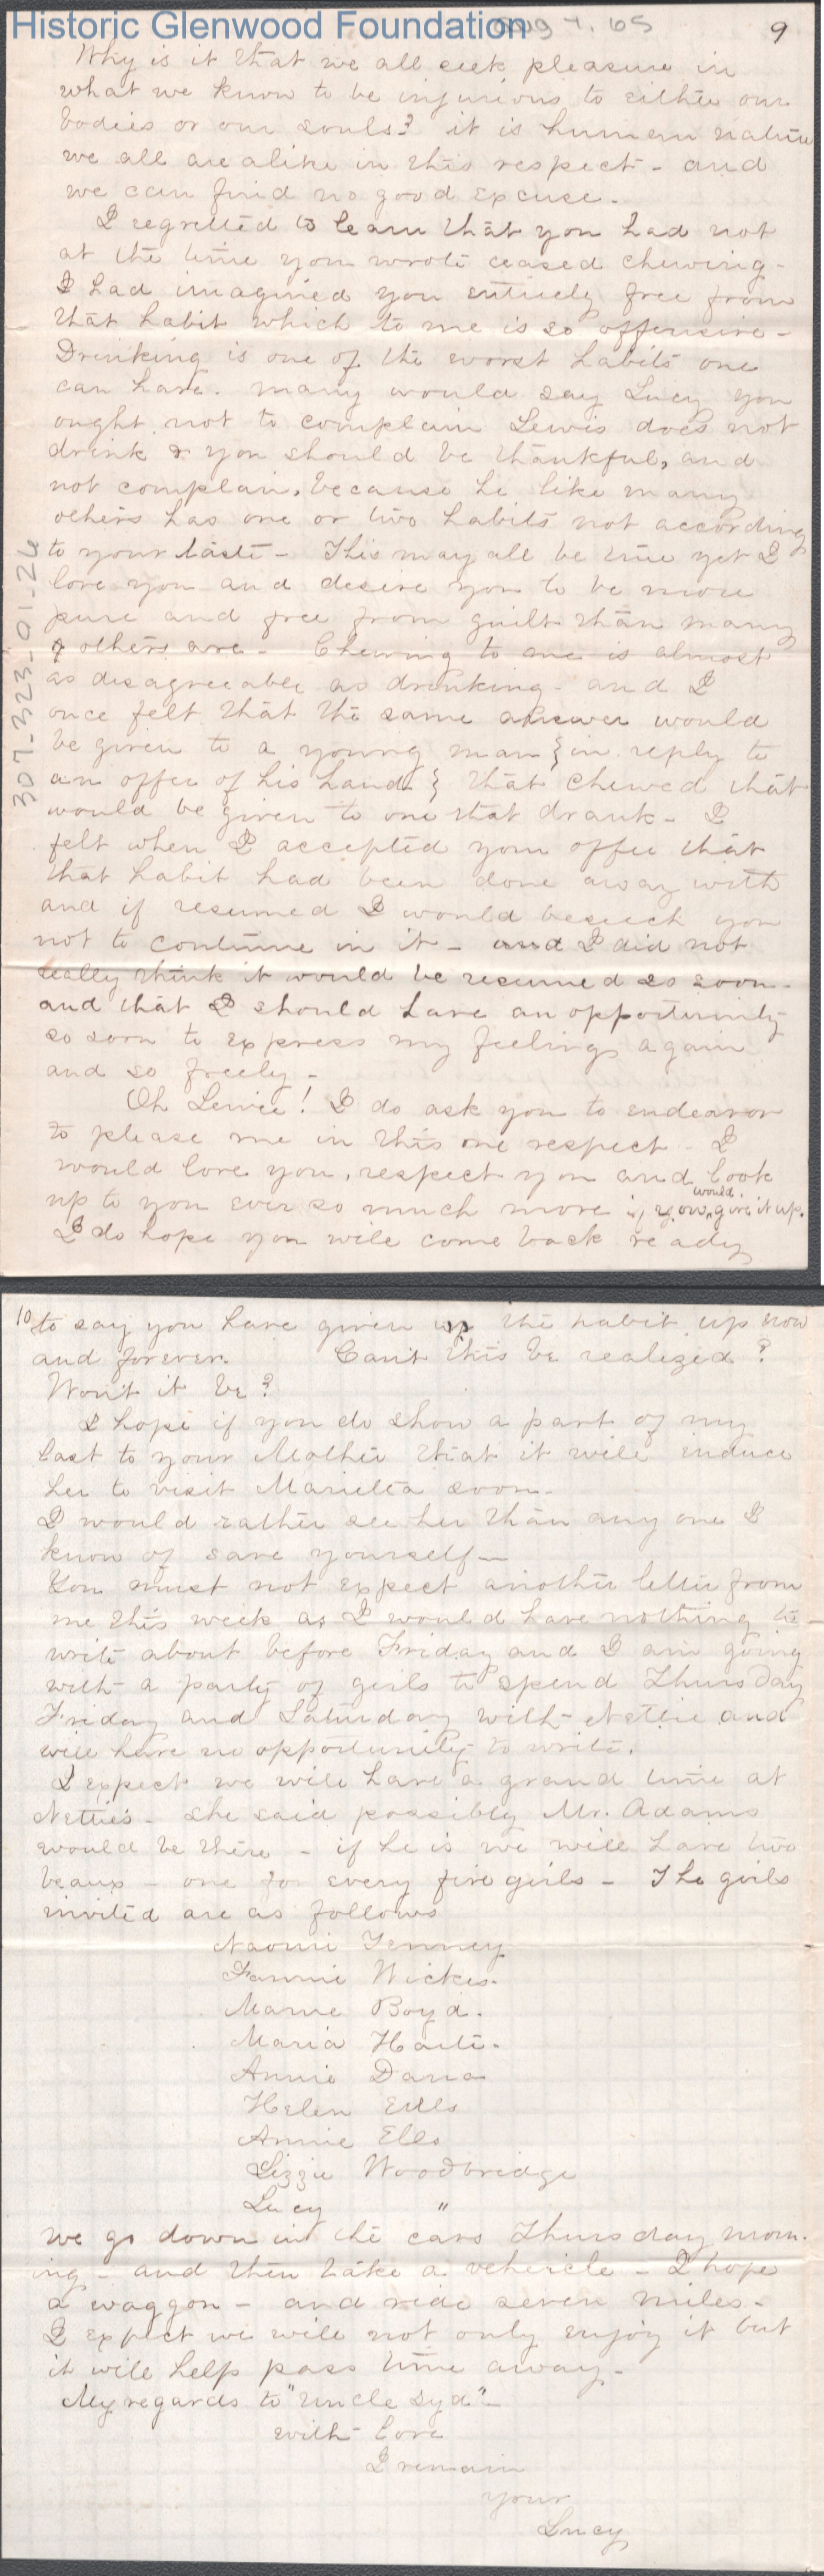 Historic Glenwood Foundation
Aug 7. 65
9
Why is it that we all seek pleasure in
what we know to be injurious to either our
bodies or our souls? it is human nature
we all are alike in this respect - and
we can find no good excuse.
I regretted to learn that you had not
at the time you wrote ceased chewing -
I had imagined you entirely free from
that habit which to me is so offensive -
Drinking is one of the worst habits one
can have. many would say Lucy you
ought not to complain Lewis does not
drink & you should be thankful, and
not complain, because he like many
others has one or two habits not according
to your taste - This may all be true yet I
love you and desire you to be more
pure and free from guilt than many
others are - Chewing to me is almost
as disagreeable as drinking - and I
once felt that the same answer would
be given to a young man { in reply to
an offer of his hand } that chewed that
would be given to one that drank - I
felt when I accepted your offer that
that habit had been done away with
and if resumed I would beseech you
not to continue in it - and I did not
really think it would be resumed so soon -
and that I should have an opportunity
so soon to express my feelings again
and so freely -
Oh Lewie! I do ask you to endeavor
to please me in this one respect - I
would love you, respect you and look
up to you ever so much more if you would give it up.
I do hope you will come back ready
307-323-01-26
10
to say you have given up the habit up now
and forever. Can't this be realized?
Wont it be?
I hope if you do show a part of my
last to your Mother that it will induce
her to visit Marietta soon -
I would rather see her than any one I
know of save yourself -
You must not expect another letter from
me this week as I would have nothing to
write about before Friday and I am going
with a party of girls to spend Thursday
Friday and Saturday with Nettie and
will have no opportunity to write.
I expect we will have a grand time at
Netties - she said possibly Mr. Adams
would be there - if he is we will have two
beaux - one for every five girls - The girls
invited are as follows
Naomi Tenney
Fannie Wickes.
Mame Boyd.
Maria Harte.
Annie Dana
Helen Ells
Annie Ells
Lizzie Woodbridge
Lucy "
We go down in the cars Thursday morn-
ing - and then take a vehericle - I hope
a waggon - and ride seven miles -
I expect we will not only enjoy it but
it will help pass time away -
My regards to "Uncle Syd" -
With love
I remain
your
Lucy